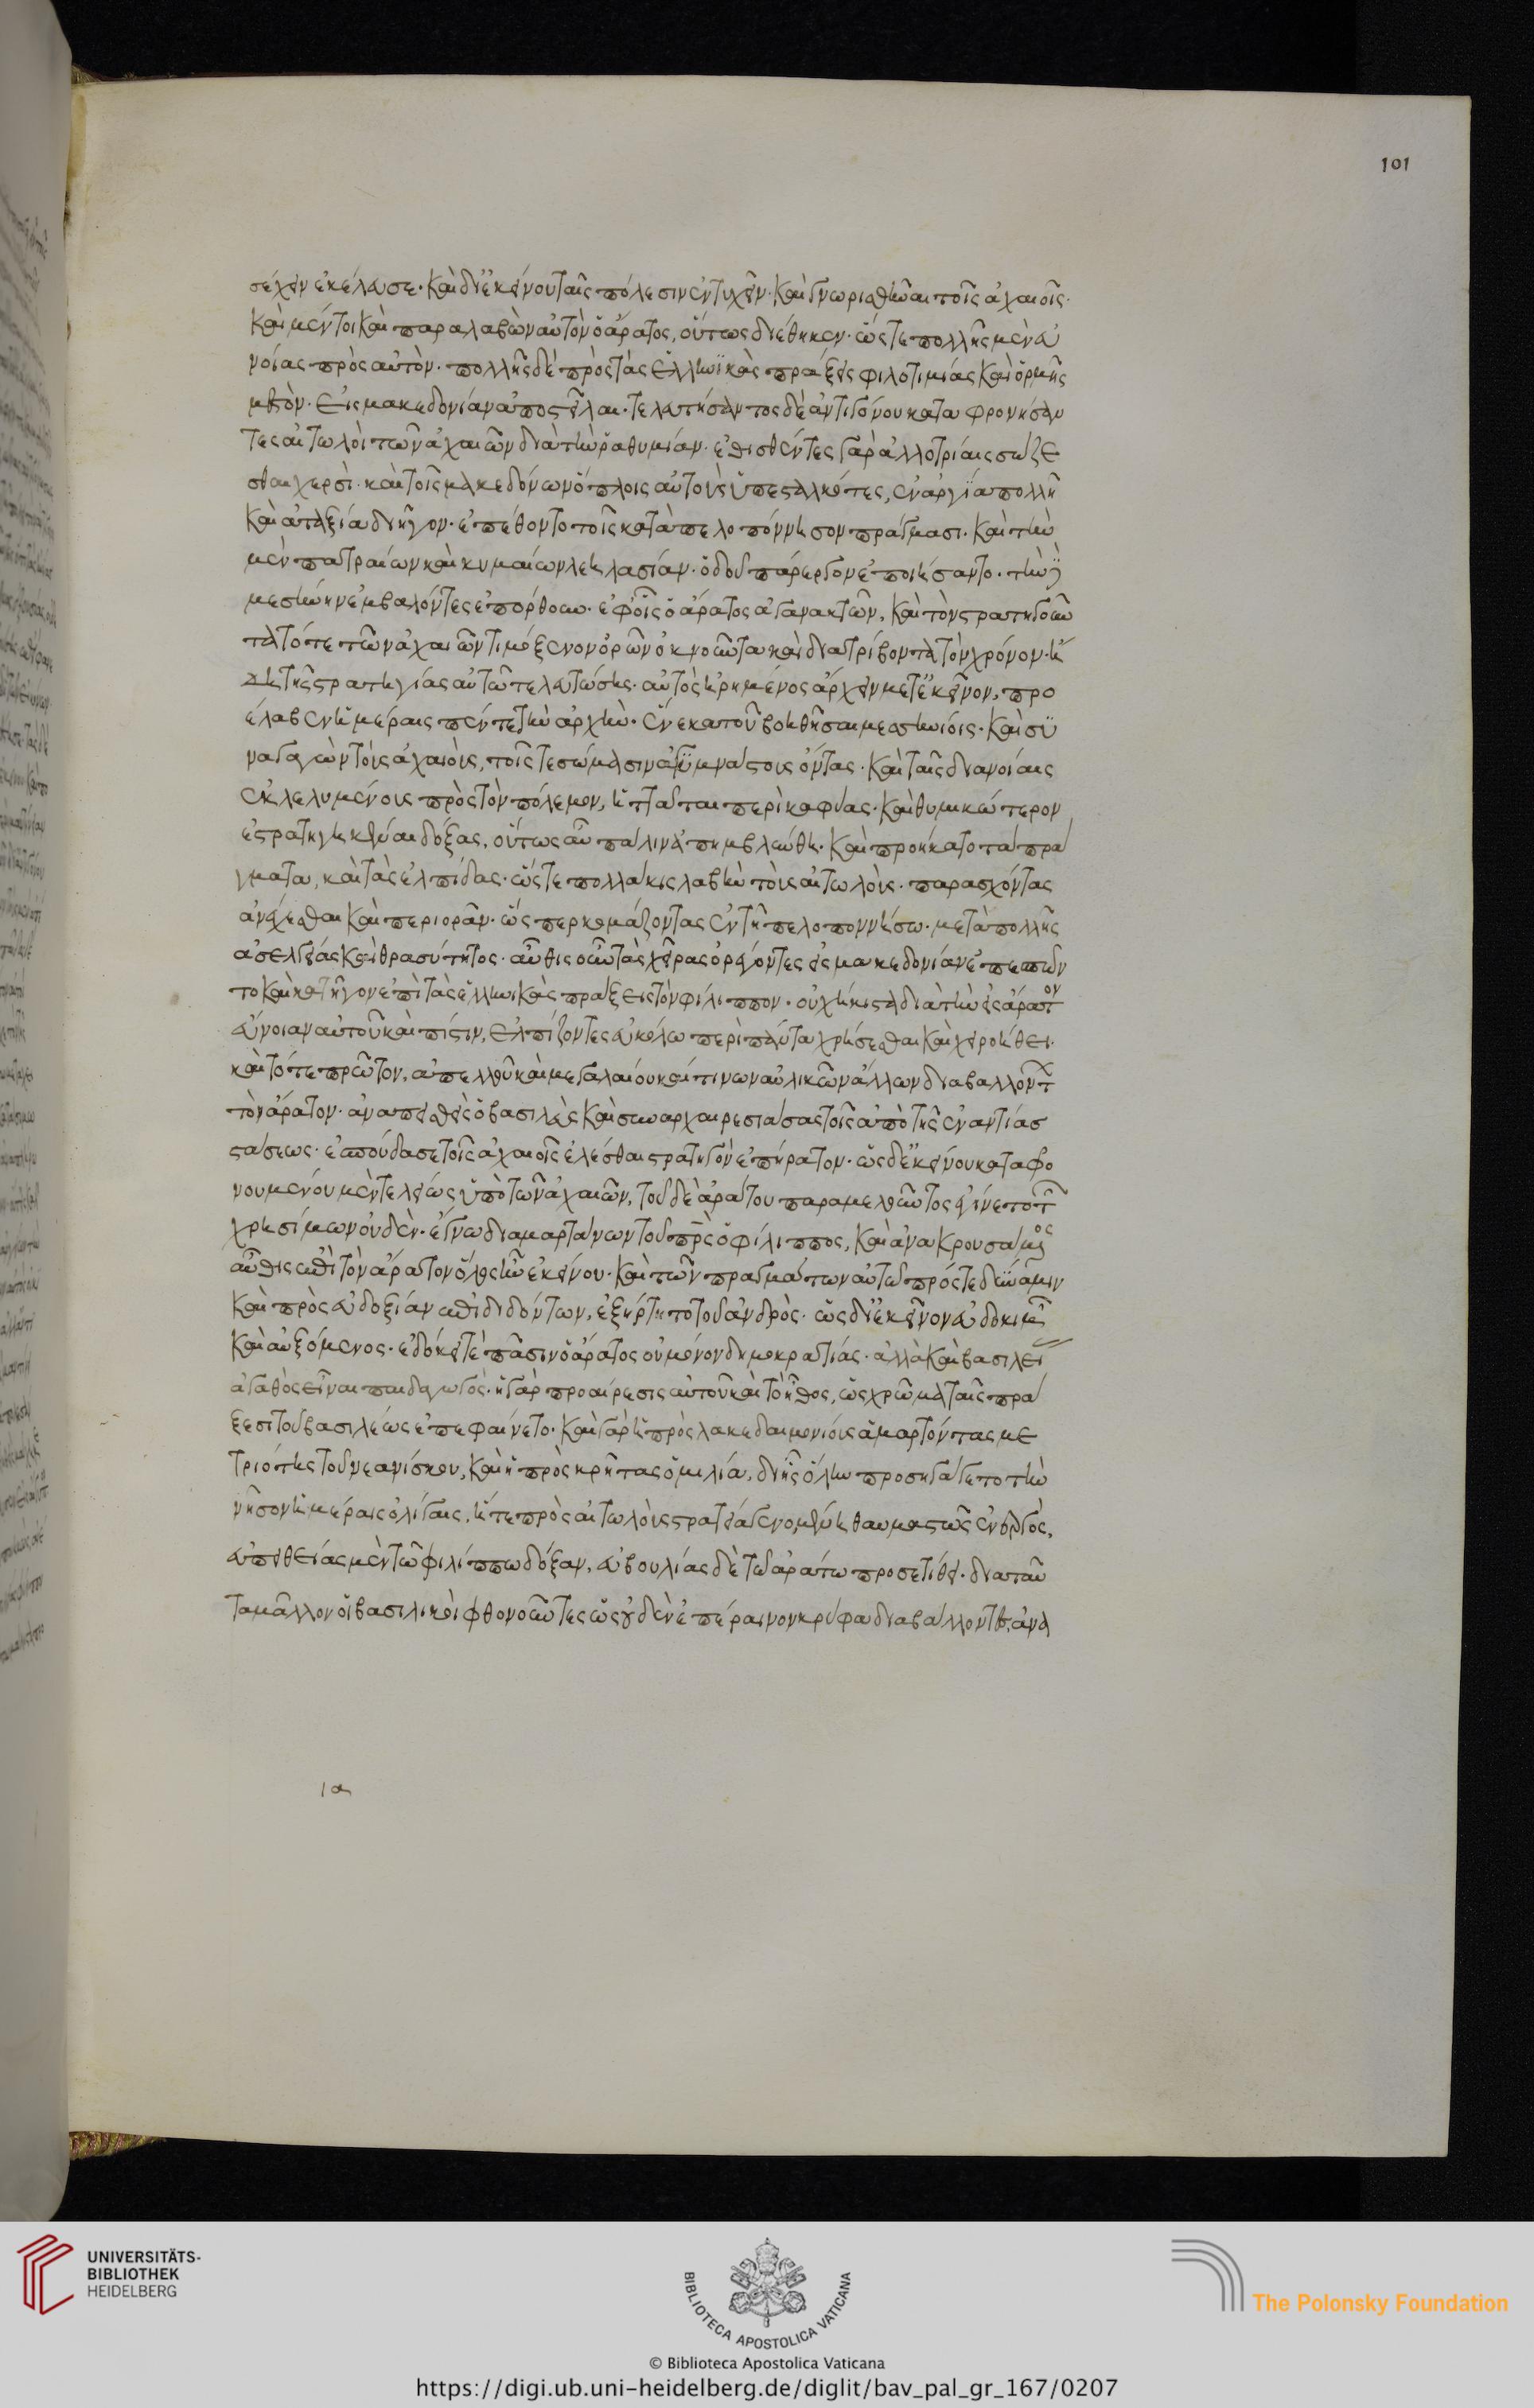 101
σέχειν ἐκέλευσε· καὶ δι' ἐκείνου ταῖς πόλεσιν ἐντυχεῖν· καὶ γνωρισθῆναι τοῖς ἀχαιοῖς·
καὶ μέντοι καὶ παραλαβὼν αὐτὸν ὁ ἄρατος, οὕτως διέθηκεν· ὥστε πολλῆς μὲν εὐ
νοίας πρὸς αὐτὸν· πολλῆς δὲ πρὸς τὰς ἑλληνϊκὰς πράξεις φιλοτιμίας καὶ ὁρμῆς
μεστὸν· εἰς μακεδονίαν ἀποστεῖλαι· τελευτήσαντος δὲ ἀντιγόνου καταφρονήσαν
τες αἰτωλοὶ τῶν ἀχαιῶν διὰ τὴν ῥαθυμίαν· ἐθισθέντες γὰρ ἀλλοτρίαις σώζε
σθαι χερσὶ· καὶ τοῖς μακεδόνων ὅπλοις αὐτοὺς ὑπεσταλκότες, ἐν ἀργίᾳ πολλῆ
καὶ ἀταξία διῆγον· ἐπέθοντο τοῖς κατὰ πελοπόννησον πράγμασι· καὶ τὴν
μὲν πατραίων καὶ κυμαίων λεηλασίαν· ὁδοῦ πάρεργον ἐποιήσαντο· τὴν δὲ
μεσήνην ἐμβαλόντες ἐπόρθουν· ἐφ' οἷς ὁ ἄρατος ἀγανακτῶν, καὶ τὸν στρατηγοῦν
τα τότε τῶν ἀχαιῶν τιμόξενον ὁρῶν ὀκνοῦντα καὶ διατρίβοντα τὸν χρόνον· ἤ
δη τῆς στρατηγίας αὐτῶ τελευτώσης· αὐτὸς ἡρημένος ἄρχειν μετ' ἐκεῖνον, προ
έλαβεν ἡμέραις πέντε τὴν ἀρχὴν· ἕνεκα τοῦ βοηθῆσαι μεσηνίοις· καὶ συ
ναγαγὼν τοὺς ἀχαιοὺς, τοῖς τε σώμασιν ἀγυμνάστοις ὄντας· καὶ ταῖς διανοίαις
ἐκλελυμένοις πρὸς τὸν πόλεμον, ἡττᾶται περὶ καφύας· καὶ θυμικώτερον
ἐστρατηγηκέναι δόξας, οὕτως αὖ πάλιν ἀπημβλύνθη· καὶ προήκατο τὰ πρά
γματα, καὶ τὰς ἐλπίδας· ὥστε πολλάκις λαβὴν τοὺς αἰτωλοὺς· παρασχόντας
ἀνέχεσθαι καὶ περιορᾶν· ὥσπερ κωμάζοντας ἐν τῆ πελοποννήσω· μετὰ πολλῆς
ἀσελγείας καὶ θρασύτητος· αὖθις οὖν τὰς χεῖρας ὀρέγοντες εἰς μακεδονίαν ἐπεσπῶν
το καὶ κατῆγον ἐπὶ τὰς ἑλληνικὰς πράξεις τὸν φίλιππον· οὐχ ἥκιστα διὰ τὴν εἰς ἄρατον
εὔνοιαν αὐτοῦ καὶ πίστιν, ἐλπίζοντες εὐκόλω περὶ πάντα χρήσεσθαι καὶ χειροήθει·
καὶ τότε πρῶτον, ἀπελλοῦ καὶ μεγαλαίου καί τινων αὐλικῶν ἄλλων διαβαλλόντων
τὸν ἄρατον· ἀναπεισθεὶς ὁ βασιλεὺς καὶ συναρχαιρεσιάσας τοῖς ἀπὸ τῆς ἐναντίας
στάσεως· ἐσπούδασε τοῖς ἀχαιοῖς ἑλέσθαι στρατηγὸν ἐπήρατον· ὡς δ' ἐκείνου καταφρο
νουμένου μὲν τελείως ὑπὸ τῶν ἀχαιῶν, τοῦ δὲ ἀράτου παραμελοῦντος ἐγίνετο τῶν
χρησίμων οὐδὲν· ἔγνω διαμαρτάνων τοῦ παντὸς ὁ φίλιππος, καὶ ἀνακρουσάμενος
αὖθις ἐπὶ τὸν ἄρατον ὅλος ἦν ἐκείνου· καὶ τῶν πραγμάτων αὐτῶ πρός τε δύναμιν
καὶ πρὸς εὐδοξίαν ἐπιδιδόντων, ἐξήρτητο τοῦ ἀνδρὸς· ὡς δι' ἐκεῖνον εὐδοκιμῶν
καὶ αὐξόμενος· ἐδόκει τὲ πᾶσιν ὁ ἄρατος οὐ μόνον δημοκρατίας· ἀλλὰ καὶ βασιλεί
ἀγαθὸς εἶναι παιδαγωγὸς· ἡ γὰρ προαίρεσις αὐτοῦ καὶ τὸ ἦθος, ὡς χρῶμα ταῖς πρά
ξεσι τοῦ βασιλέως ἐπεφαίνετο· καὶ γὰρ ἡ πρὸς λακεδαιμονίους ἁμαρτόντας με
τριότης τοῦ νεανίσκου, καὶ ἡ πρὸς κρῆτας ὁμιλία, δι' ἧς ὅλην προσηγάγετο τὴν
νῆσον ἡμέραις ὀλίγαις, ἥ τε πρὸς αἰτωλοὺς στρατεία γενομένη θαυμαστῶς ἐνεργὸς,
εὐπειθείας μὲν τῶ φιλίππω δόξαν, εὐβουλίας δὲ τῶ ἀράτω προσετίθει· διὰ ταῦ
τα μᾶλλον οἱ βασιλικοὶ φθονοῦντες ὡς οὐδὲν ἐπέραινον κρύφα διαβάλλοντες, ἀνα
ια
UNIVERSITÄTS-
BIBLIOTHEK
HEIDELBERG
BIBLIOTECA APOSTOLICA VATICANA
The Polonsky Foundation
© Biblioteca Apostolica Vaticana
https://digi.ub.uni-heidelberg.de/diglit/bav_pal_gr_167/0207